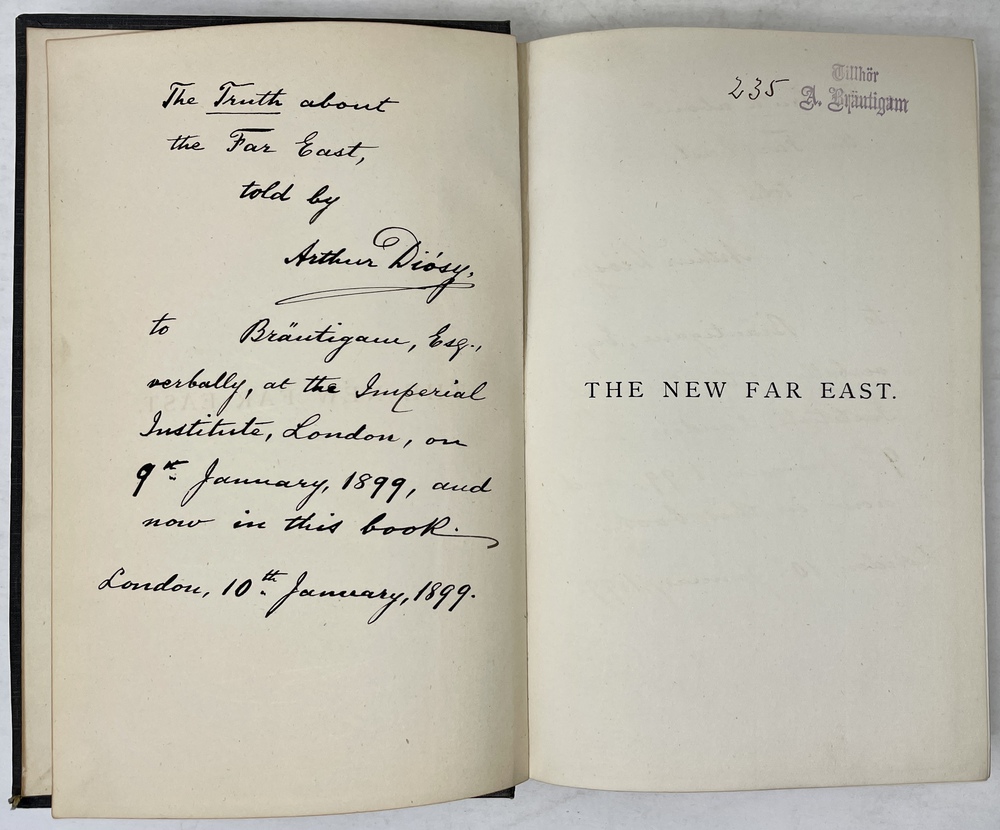 The Truth about
the Far East,
told by
Arthur Diósy,
to Bräutigam, Esq.,
verbally, at the Imperial
Institute, London, on
9th January, 1899, and
now in this book.
London, 10th January, 1899.
235
Tillhör
A. Bräutigam
THE NEW FAR EAST.